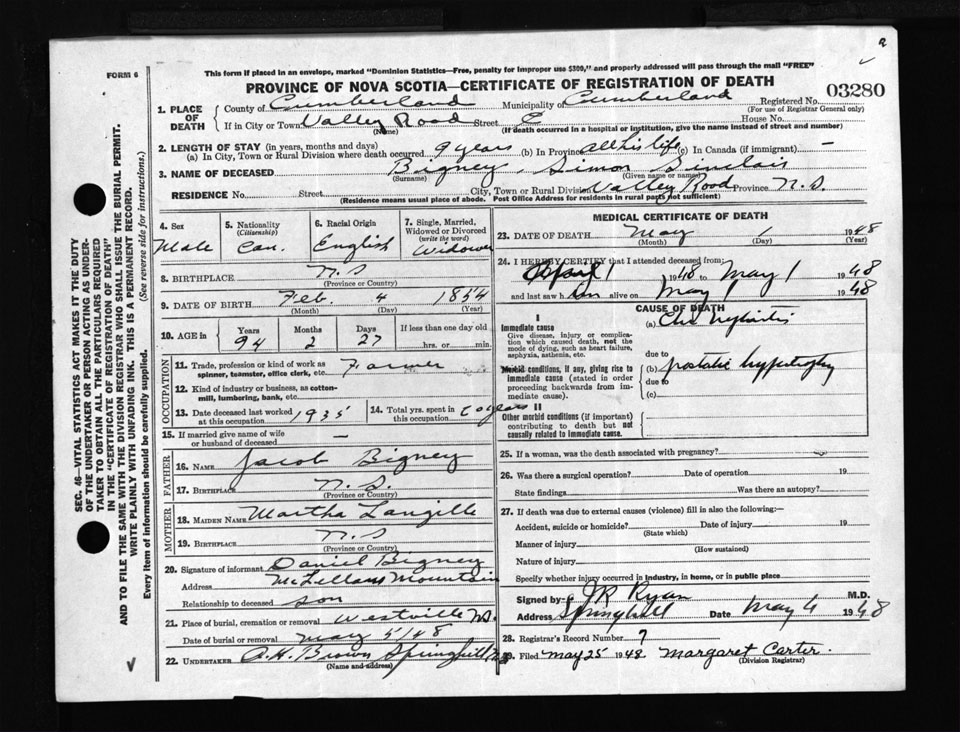 FORM 6
This form if placed in an envelope, marked "Dominion Statistics—Free, penalty for improper use $300," and properly addressed will pass through the mail "FREE"
PROVINCE OF NOVA SCOTIA—CERTIFICATE OF REGISTRATION OF DEATH
03280
1. PLACE OF DEATH
County of Cumberland Municipality of Cumberland Registered No.
(For use of Registrar General only)
If in City or Town Valley Road Street House No.
(Name) (If death occurred in a hospital or institution, give the name instead of street and number)
2. LENGTH OF STAY (in years, months and days)
(a) In City, Town or Rural Division where death occurred 9 years (b) In Province all his life (c) In Canada (if immigrant) —
3. NAME OF DECEASED Bigney, Simon Sinclair
(Surname) (Given name or names)
RESIDENCE No. Street City, Town or Rural Division Valley Road Province N.S.
(Residence means usual place of abode. Post Office Address for residents in rural parts not sufficient)
4. Sex
Male
5. Nationality
(Citizenship)
Can.
6. Racial Origin
English
7. Single, Married, Widowed or Divorced
(write the word)
Widower
8. BIRTHPLACE N.S
(Province or Country)
9. DATE OF BIRTH Feb. 4 1854
(Month) (Day) (Year)
10. AGE in
Years Months Days
94 2 27
If less than one day old
hrs. or min.
OCCUPATION
11. Trade, profession or kind of work as spinner, teamster, office clerk, etc. Farmer
12. Kind of industry or business, as cotton-mill, lumbering, bank, etc.
13. Date deceased last worked at this occupation 1935
14. Total yrs. spent in this occupation years
15. If married give name of wife or husband of deceased —
FATHER
16. NAME Jacob Bigney
17. BIRTHPLACE N.S.
(Province or Country)
MOTHER
18. MAIDEN NAME Martha Langille
19. BIRTHPLACE N.S
(Province or Country)
20. Signature of informant Daniel Bigney
Address McLellans Mountain
Relationship to deceased son
21. Place of burial, cremation or removal Westville N.S.
Date of burial or removal May 5/48
22. UNDERTAKER A.H. Brown Springhill N.S
(Name and address)
MEDICAL CERTIFICATE OF DEATH
23. DATE OF DEATH May 1 1948
(Month) (Day) (Year)
24. I HEREBY CERTIFY that I attended deceased from:
April 1 1948 to May 1 1948
and last saw him alive on May 1 1948
CAUSE OF DEATH
I
Immediate cause
Give disease, injury or complication which caused death, not the mode of dying, such as heart failure, asphyxia, asthenia, etc.
(a)
due to
Morbid conditions, if any, giving rise to immediate cause (stated in order proceeding backwards from immediate cause).
(b) prostatic hypertrophy
due to
(c)
II
Other morbid conditions (if important) contributing to death but not causally related to immediate cause.
25. If a woman, was the death associated with pregnancy?
26. Was there a surgical operation? Date of operation 19
State findings Was there an autopsy?
27. If death was due to external causes (violence) fill in also the following:—
Accident, suicide or homicide? Date of injury 19
(State which)
Manner of injury
(How sustained)
Nature of injury
Specify whether injury occurred in industry, in home, or in public place
Signed by J R Ryan M.D.
Address Springhill Date May 4 1948
28. Registrar's Record Number 7
29. Filed May 25 1948 Margaret Carter.
(Division Registrar)
SEC. 46—VITAL STATISTICS ACT MAKES IT THE DUTY
OF THE UNDERTAKER OR PERSON ACTING AS UNDER-
TAKER TO OBTAIN ALL THE PARTICULARS REQUIRED
IN THE "CERTIFICATE OF REGISTRATION OF DEATH"
AND TO FILE THE SAME WITH THE DIVISION REGISTRAR WHO SHALL ISSUE THE BURIAL PERMIT.
WRITE PLAINLY WITH UNFADING INK. THIS IS A PERMANENT RECORD.
Every item of information should be carefully supplied. (See reverse side for instructions.)